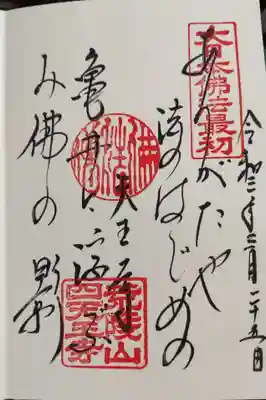 令和二年二月二十五日
大日本佛法最初
ありがたや
法のはじめの
天王寺
亀井に浮ぶ
み佛の影
荒陵山
四天王寺